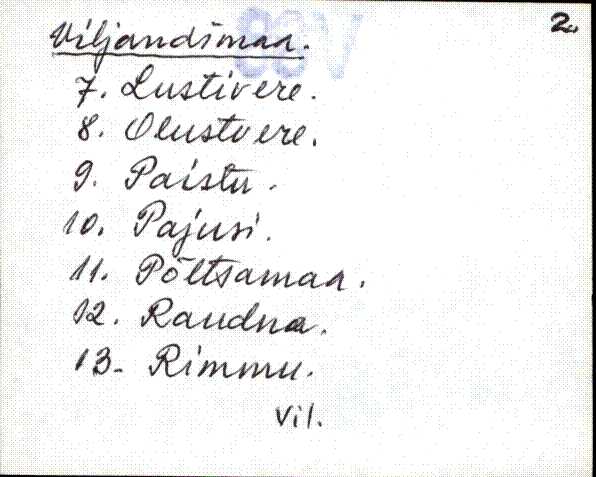 2.
Viljandimaa.
7. Lustivere.
8. Olustvere.
9. Paistu.
10. Pajusi.
11. Põltsamaa.
12. Raudna.
13. Rimmu.
Vil.